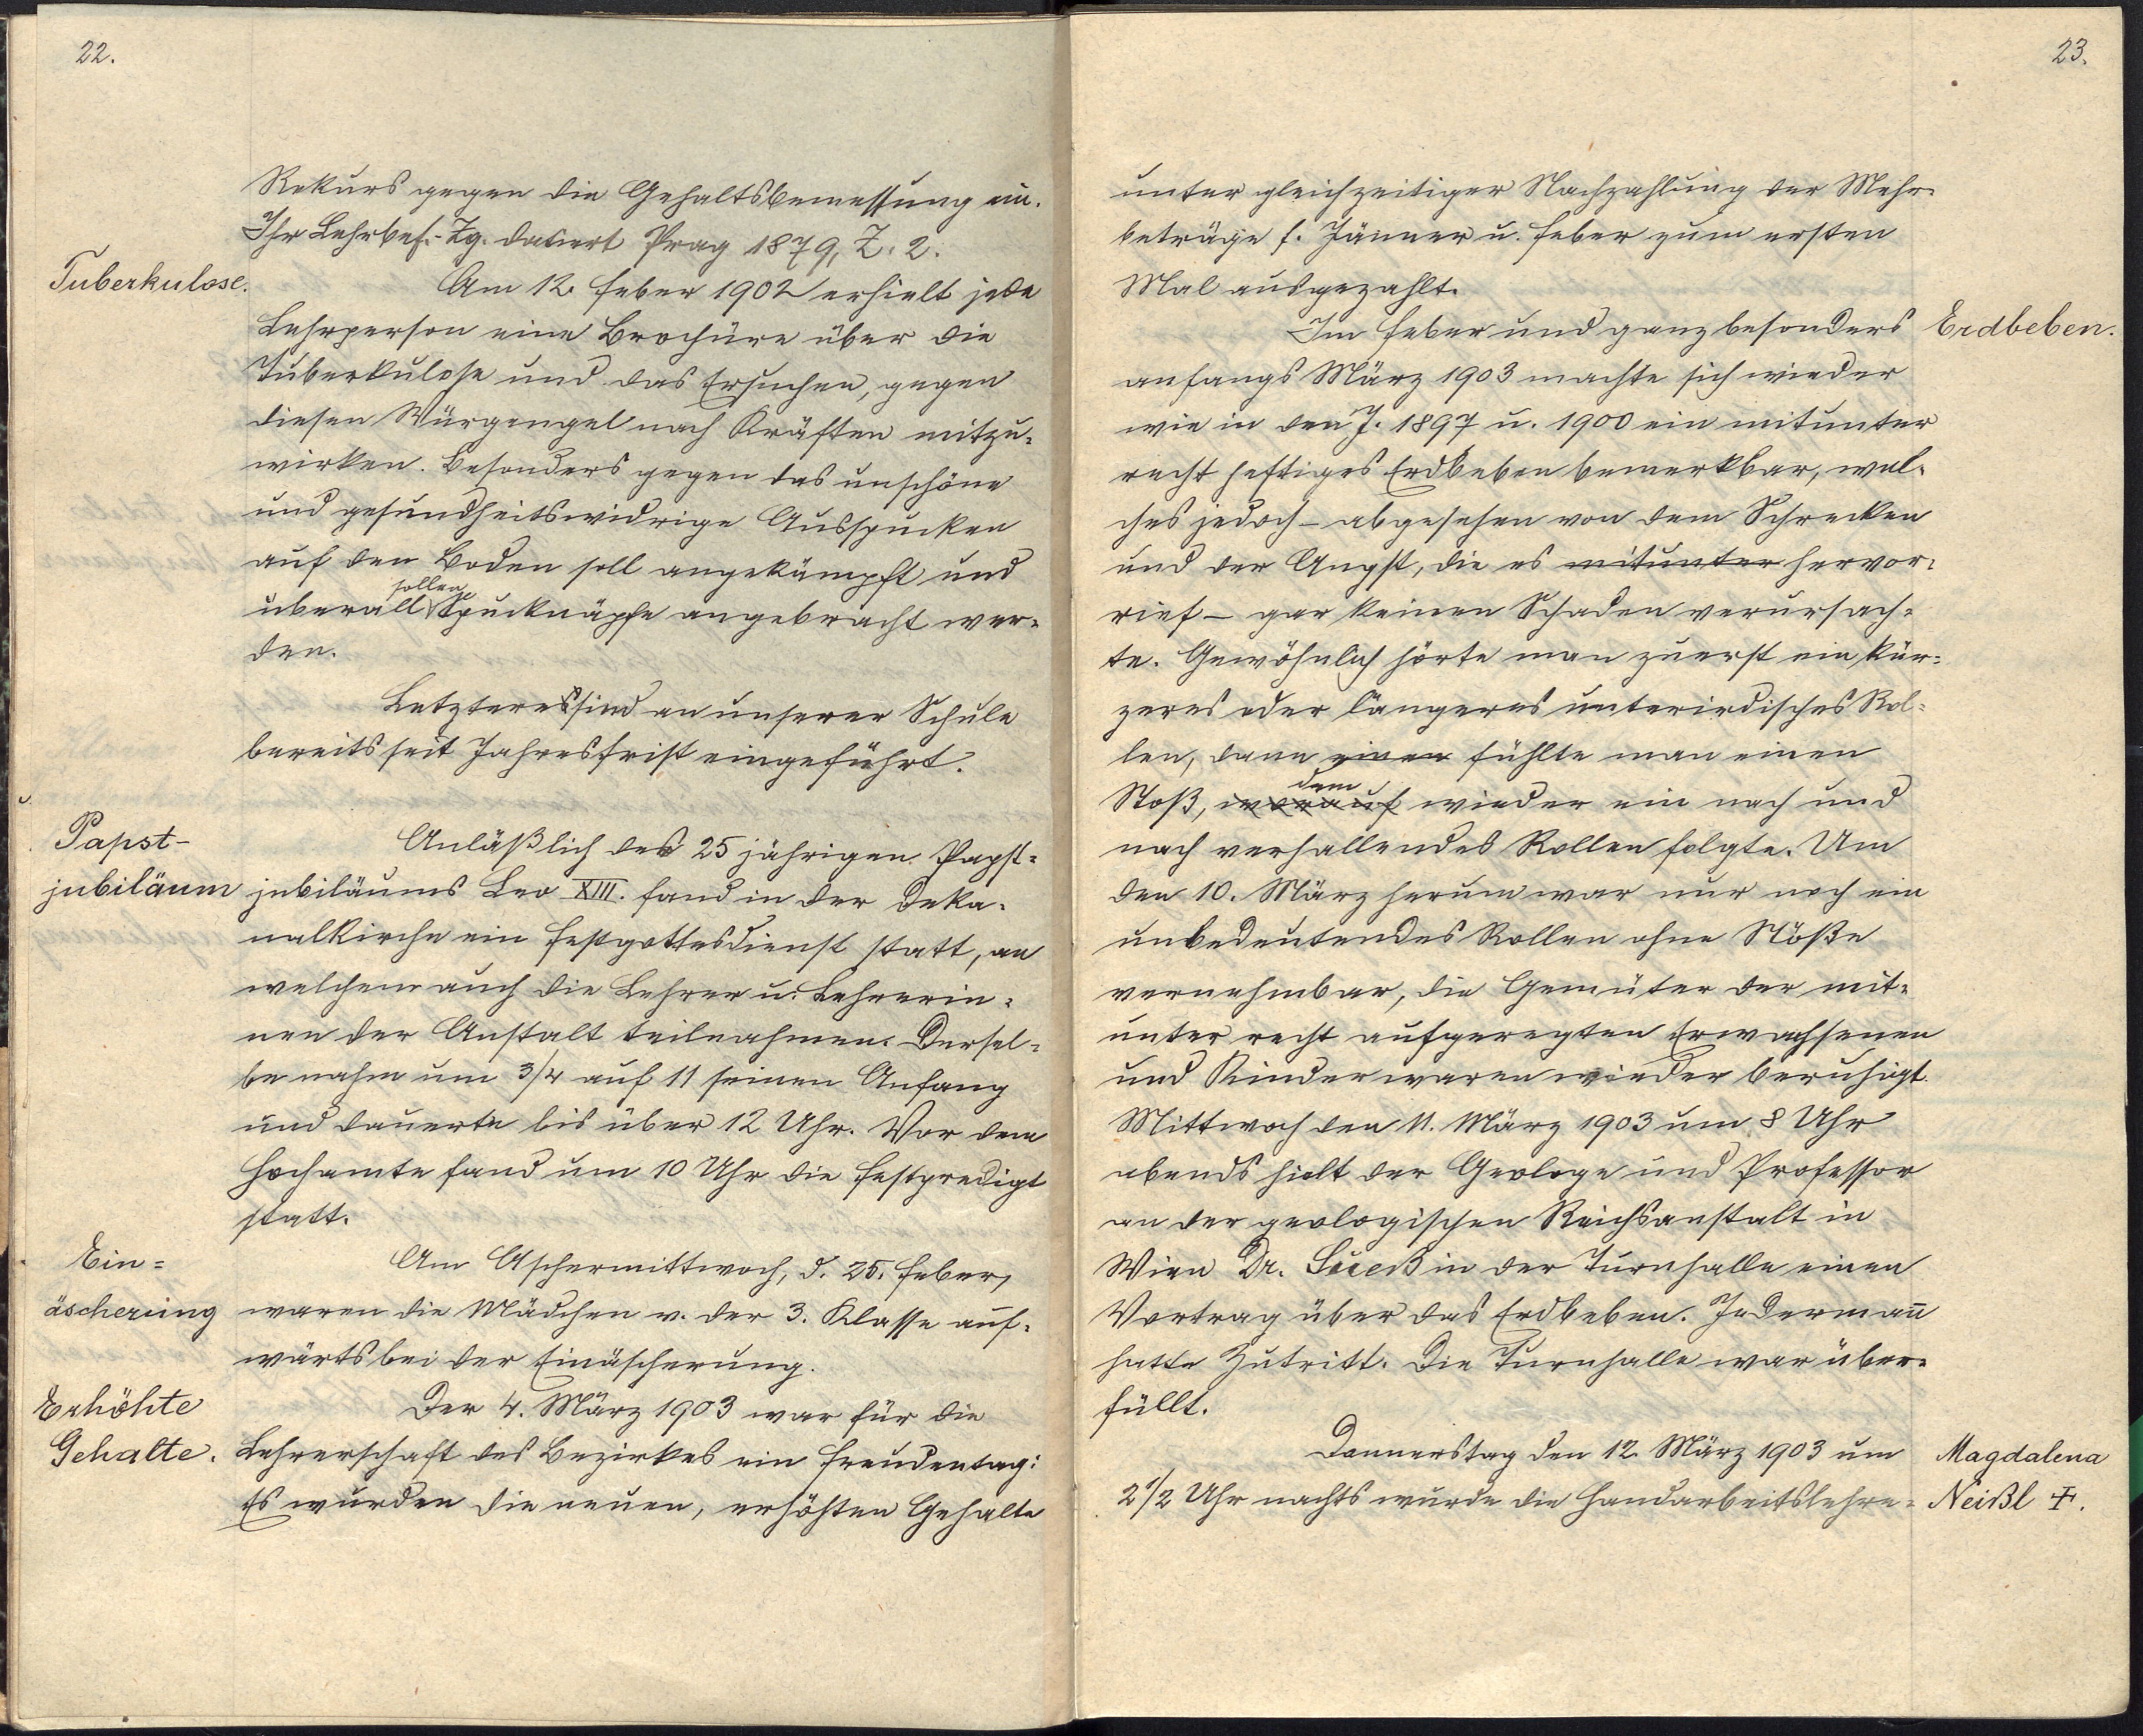 22.
Rekurs gegen die Gehaltsbemessung ein.
Ihr Lehrbef.-Zg. datiert Prag 1879, Z. 2.
Tuberkulose.
Am 12. Feber 1902 erhielt jede
Lehrperson eine Brochüre über die
Tuberkulose und das Ersuchen, gegen
diesen Würgengel nach Kräften mitzu-
wirken. Besonders gegen das unschöne
und gesundheitswidrige Ausspucken
auf den Boden soll angekämpft und
sollen
überall Spucknäpfe angebracht wer-
den.
Letztere sind an unserer Schule
bereits seit Jahresfrist eingeführt.
Papst-
jubiläum
Anläßlich des 25 jährigen Papst-
jubiläums Leo XIII. fand in der Deka-
nalkirche ein Festgottesdienst statt, an
welchem auch die Lehrer u. Lehrerin-
nen der Anstalt teilnahmen. Dersel-
be nahm um 3/4 auf 11 seinen Anfang
und dauerte bis über 12 Uhr. Vor dem
Hochamte fand um 10 Uhr die Festpredigt
statt.
Ein-
äscherung
Am Aschermittwoch, d. 25. Feber,
waren die Mädchen v. der 3. Klasse auf-
wärts bei der Einäscherung.
Erhöhte
Gehalte.
Der 4. März 1903 war für die
Lehrerschaft des Bezirkes ein Freudentag:
Es wurden die neuen, erhöhten Gehalte
23.
unter gleichzeitiger Nachzahlung der Mehr-
beträge f. Jänner u. Feber zum ersten
Mal ausgezahlt.
Im Feber und ganz besonders
Erdbeben.
anfangs März 1903 machte sich wieder
wie in den J. 1897 u. 1900 ein mitunter
recht heftiges Erdbeben bemerkbar, wel-
ches jedoch - abgesehen von dem Schrecken
und der Angst, die es mitunter hervor-
rief - gar keinen Schaden verursach-
te. Gewöhnlich hörte man zuerst ein kür-
zeres oder längeres unterirdisches Rol-
len, dann einen fühlte man einen
dem
Stoß, worauf wieder ein nach und
nach verhallendes Rollen folgte. Um
den 10. März herum war nur noch ein
unbedeutendes Rollen ohne Stöße
vernehmbar, die Gemüter der mit-
unter recht aufgeregten Erwachsenen
und Kinder waren wieder beruhigt.
Mittwoch den 11. März 1903 um 8 Uhr
abends hielt der Geologe und Professor
an der geologischen Reichsanstalt in
Wien Dr. Sueß in der Turnhalle einen
Vortrag über das Erdbeben. Jedermañ
hatte Zutritt. Die Turnhalle war über-
füllt.
Donnerstag den 12. März 1903 um
2 1/2 Uhr nachts wurde die Handarbeitslehre-
Magdalena
Neißl †.